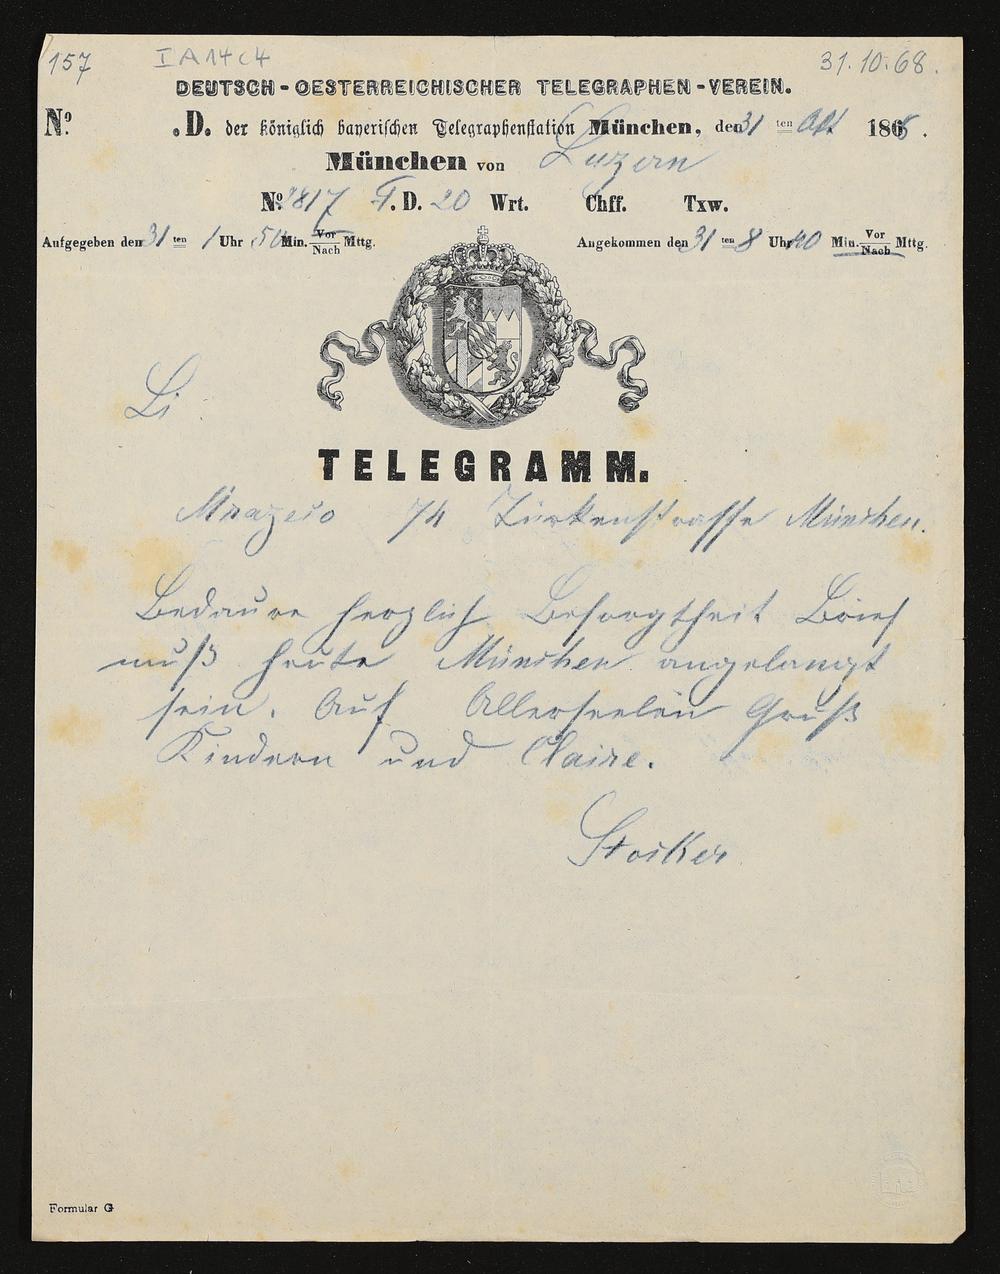 157 I A 14 c 4 31.10.68.
DEUTSCH-OESTERREICHISCHER TELEGRAPHEN-VEREIN.
No. .D. der königlich bayerischen Telegraphenstation München, den 31 ten Okt 1868.
München von Luzern
No. 2817 T. D. 20 Wrt. Chff. Txw.
Aufgegeben den 31 ten 1 Uhr 50 Min. Vor Nach Mttg. Angekommen den 31 ten 8 Uhr 40 Min. Vor Nach Mttg.
Li
TELEGRAMM.
Mrazeco 74 Türkenstrasse München.
Bedaure herzlich Besorgtheit Brief
muß heute München angelangt
sein. Auf Allerseelen Gruß
Kindern und Claire.
Stocker
Formular G